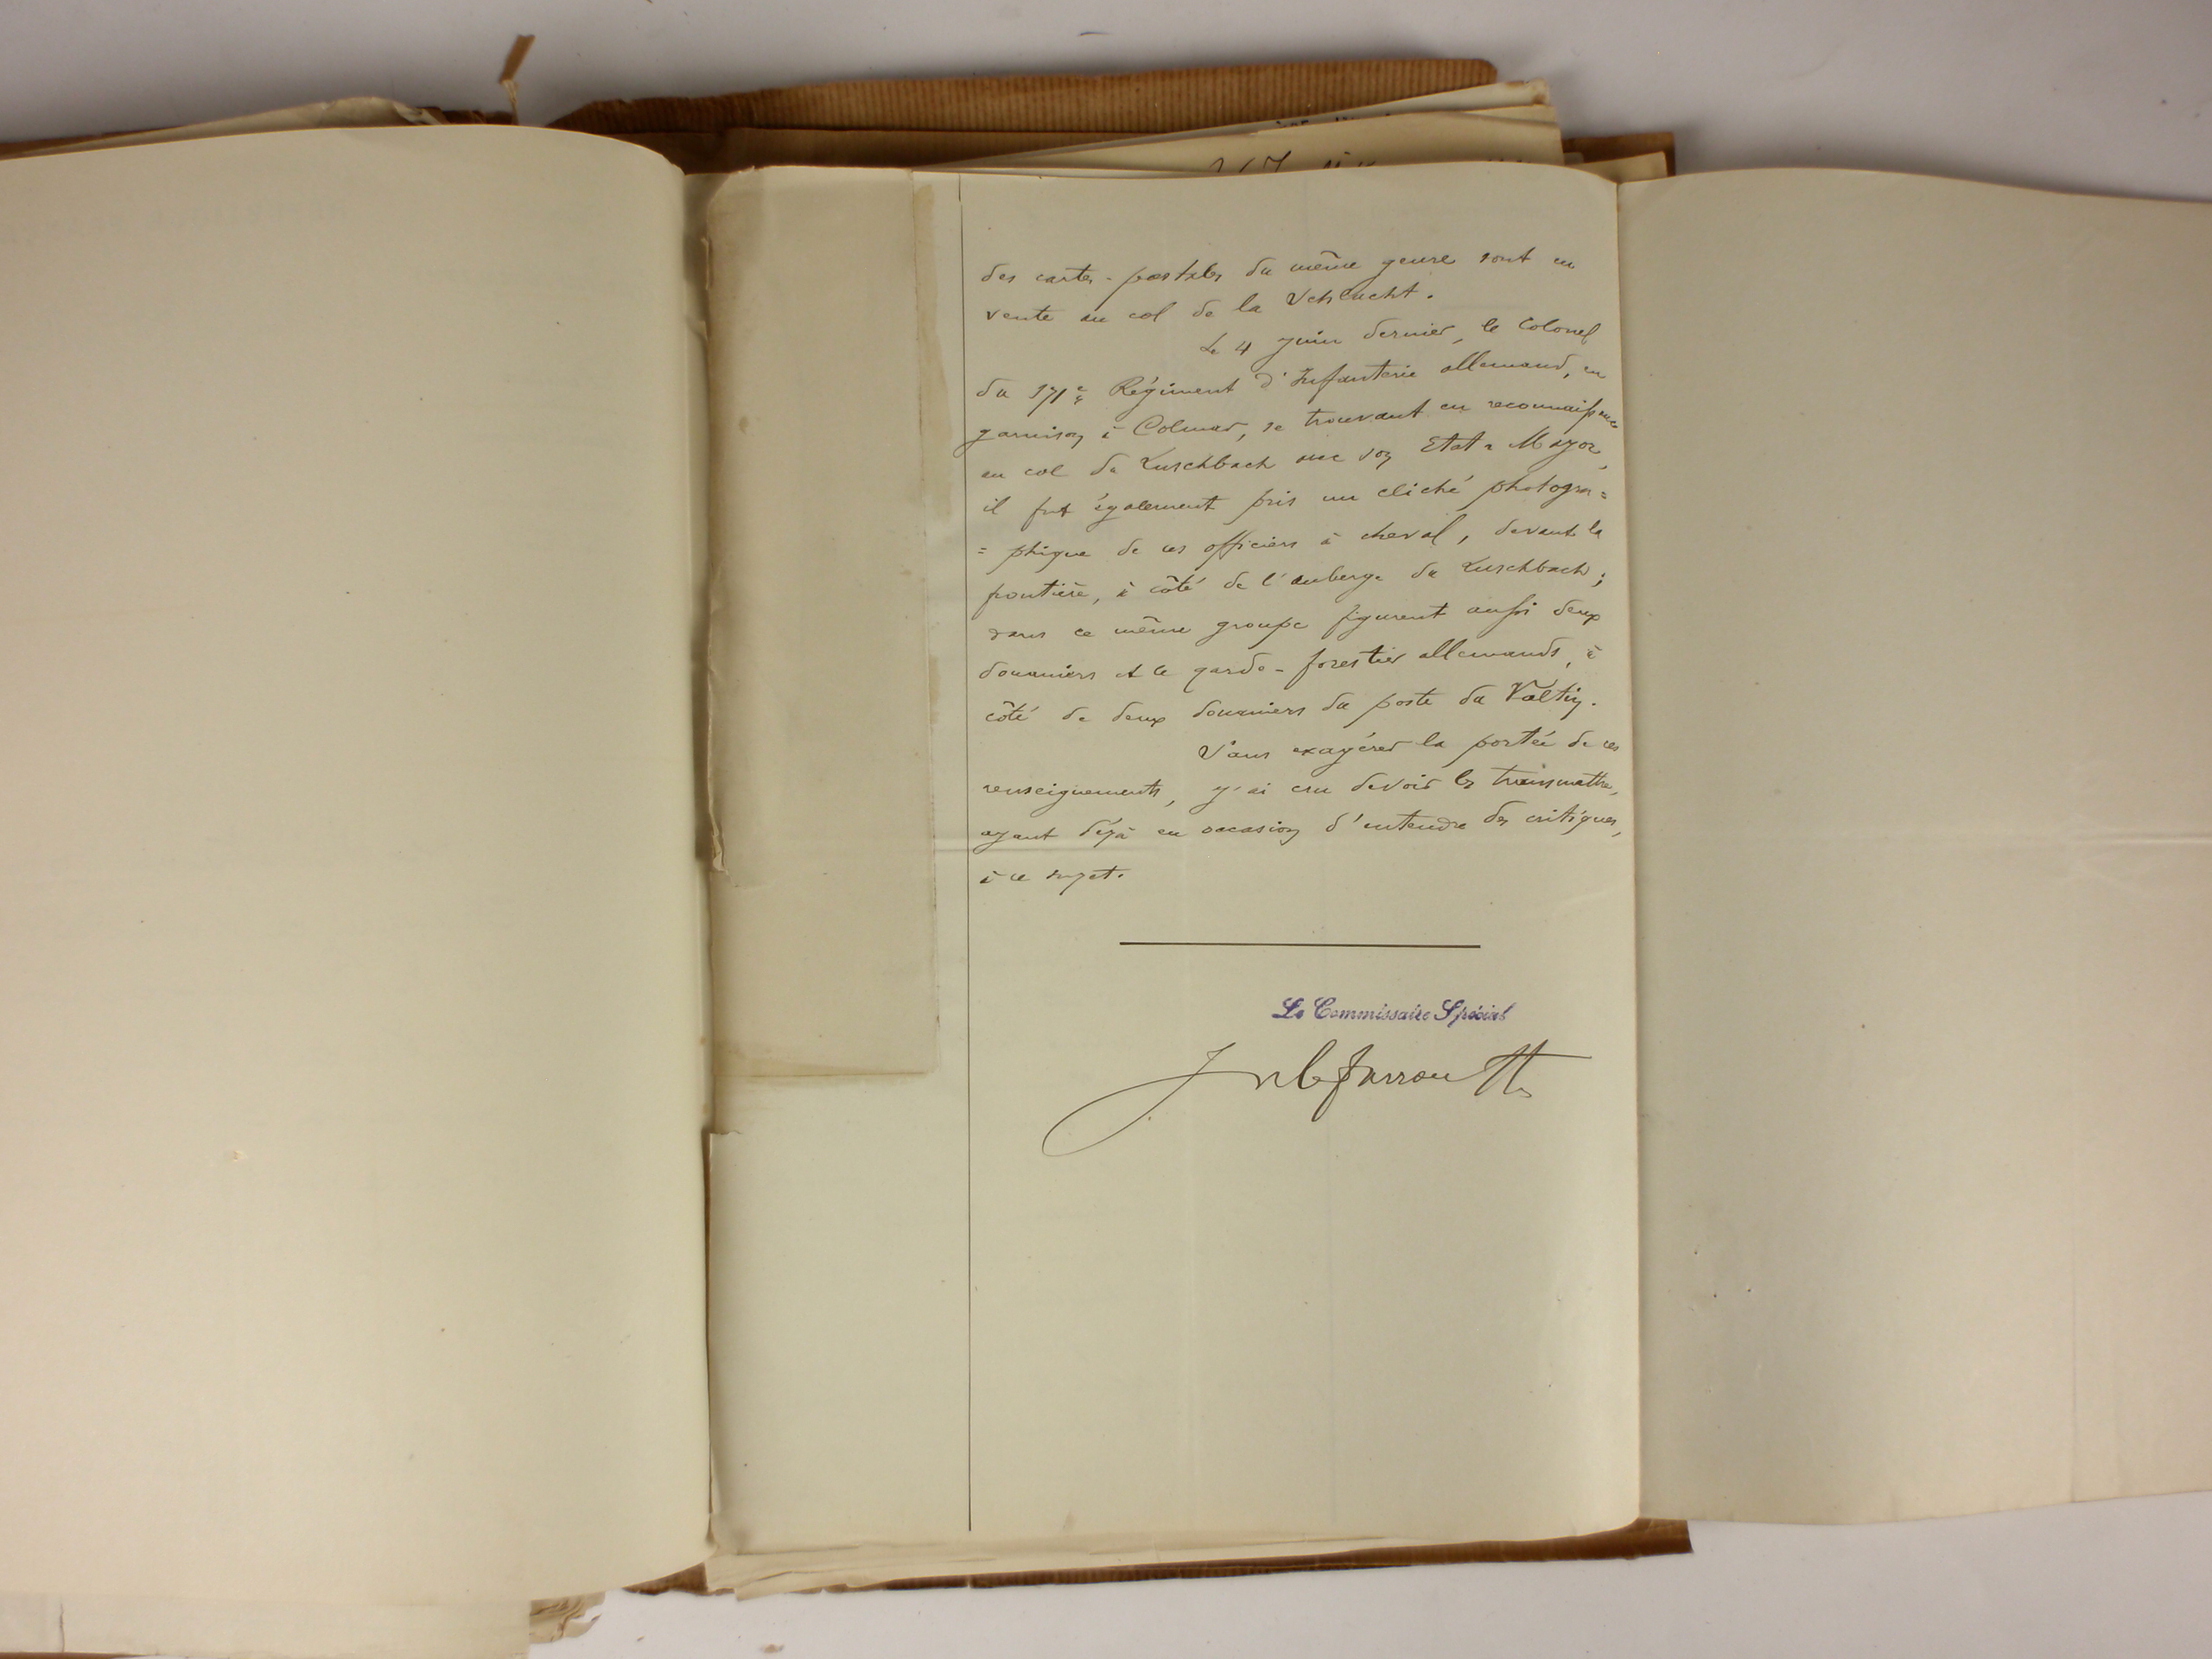 des cartes-postales du même genre sont en
vente au col de la Schlucht.
Le 4 juin dernier, le Colonel
du 171e Régiment d'Infanterie allemand, en
garnison à Colmar, se trouvant en reconnaissance
au col du Luschbach avec son Etat-Major,
il fut également pris un cliché photogra=
=phique de ces officiers à cheval, devant la
frontière, à côté de l'auberge du Luschbach;
dans ce même groupe figurent aussi deux
douaniers et le garde-forestier allemands, à
côté de deux douaniers du poste du Valtin.
Sans exagérer la portée de ces
renseignements, j'ai cru devoir les transmettre,
ayant déjà eu occasion d'entendre des critiques,
à ce sujet.
Le Commissaire Spécial